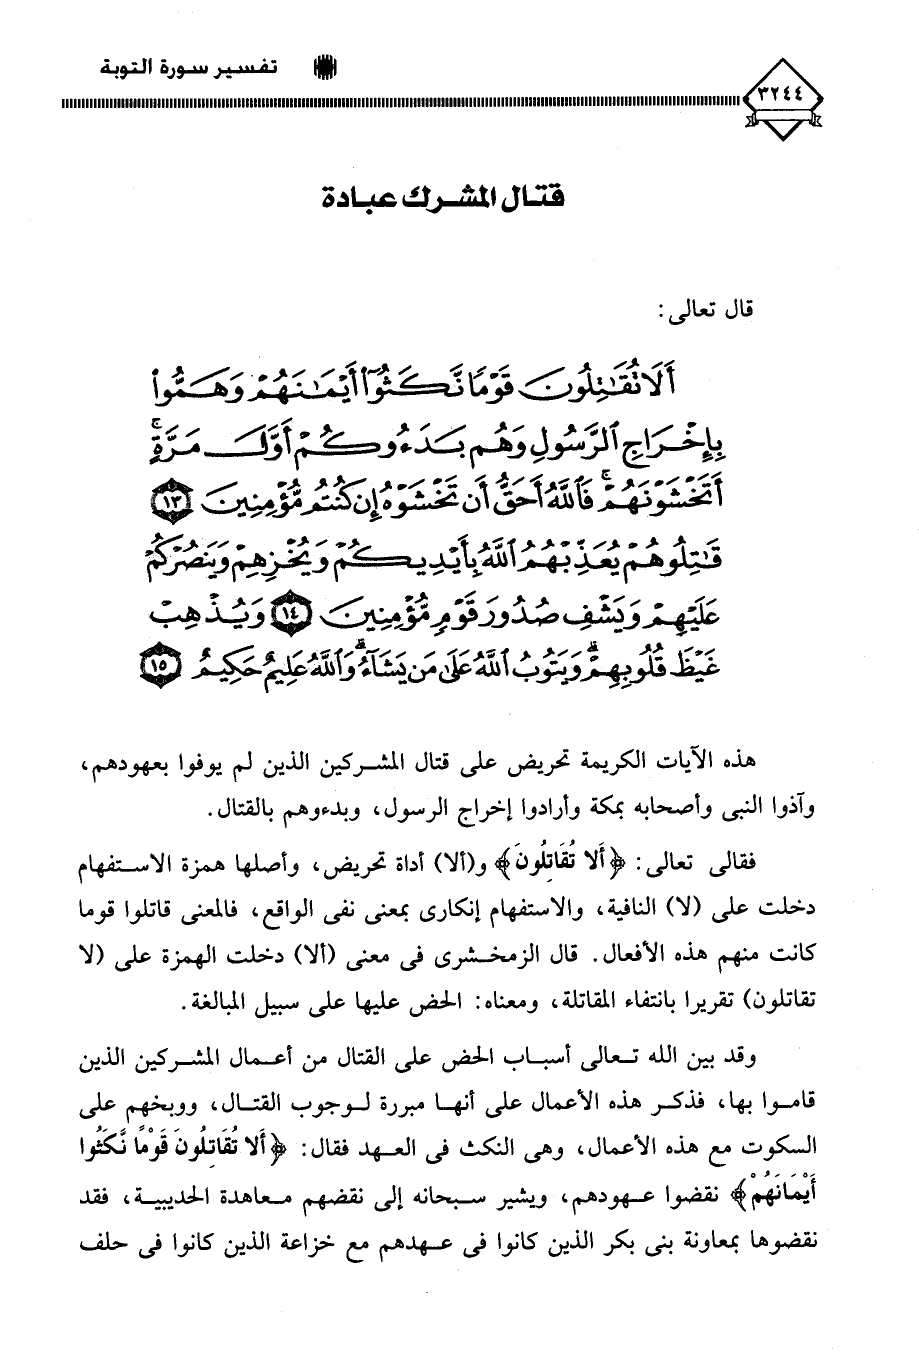 تفسير سورة التوبة
٣٢٤٤
قتال المشرك عبادة
قال تعالى:
أَلَا تُقَاتِلُونَ قَوْمًا نَّكَثُوٓا۟ أَيْمَـٰنَهُمْ وَهَمُّوا۟
بِإِخْرَاجِ ٱلرَّسُولِ وَهُم بَدَءُوكُمْ أَوَّلَ مَرَّةٍ ۚ
أَتَخْشَوْنَهُمْ ۚ فَٱللَّهُ أَحَقُّ أَن تَخْشَوْهُ إِن كُنتُم مُّؤْمِنِينَ ١٣
قَـٰتِلُوهُمْ يُعَذِّبْهُمُ ٱللَّهُ بِأَيْدِيكُمْ وَيُخْزِهِمْ وَيَنصُرْكُمْ
عَلَيْهِمْ وَيَشْفِ صُدُورَ قَوْمٍ مُّؤْمِنِينَ ١٤ وَيُذْهِبْ
غَيْظَ قُلُوبِهِمْ ۗ وَيَتُوبُ ٱللَّهُ عَلَىٰ مَن يَشَآءُ ۗ وَٱللَّهُ عَلِيمٌ حَكِيمٌ ١٥
هذه الآيات الكريمة تحريض على قتال المشركين الذين لم يوفوا بعهودهم،
وآذوا النبى وأصحابه بمكة وأرادوا إخراج الرسول، وبدءوهم بالقتال.
فقالى تعالى: ﴿أَلا تُقَاتِلُونَ﴾ و(ألا) أداة تحريض، وأصلها همزة الاستفهام
دخلت على (لا) النافية، والاستفهام إنكارى بمعنى نفى الواقع، فالمعنى قاتلوا قوما
كانت منهم هذه الأفعال. قال الزمخشرى فى معنى (ألا) دخلت الهمزة على (لا
تقاتلون) تقريرا بانتفاء المقاتلة، ومعناه: الحض عليها على سبيل المبالغة.
وقد بين الله تعالى أسباب الحض على القتال من أعمال المشركين الذين
قاموا بها، فذكر هذه الأعمال على أنها مبررة لوجوب القتال، ووبخهم على
السكوت مع هذه الأعمال، وهى النكث فى العهد فقال: ﴿أَلا تُقَاتِلُونَ قَوْمًا نَّكَثُوا
أَيْمَانَهُمْ﴾ نقضوا عهودهم، ويشير سبحانه إلى نقضهم معاهدة الحديبية، فقد
نقضوها بمعاونة بنى بكر الذين كانوا فى عهدهم مع خزاعة الذين كانوا فى حلف